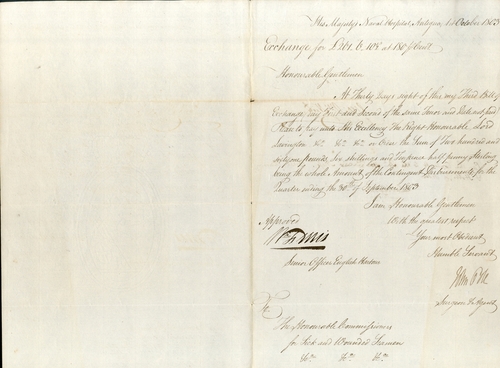 His Majesty's Naval Hospital, Antigua, 1st October 1803
Exchange for £ 6. 10½ at Cent
Honourable Gentlemen
At Thirty Days sight of this my Third Bill of
Exchange, my First and Second of the same Tenor and Date not paid
Please to pay unto His Excellency The Right Honourable Lord
Lavington &c. &c. &c. or Order the Sum of Two hundred and
pounds, Six shillings and Tenpence half penny Sterling
being the whole Amount of the Contingent Disbursements for the
Quarter ending the 30th of September 1803
I am Honourable Gentlemen
With the greatest respect
Your most Obedient
Humble Servant
Approved
Senior Officer English Harbour
John
Surgeon & Agent
To
The Honourable Commissioners
for Sick and Wounded Seamen
&c. &c. &c.